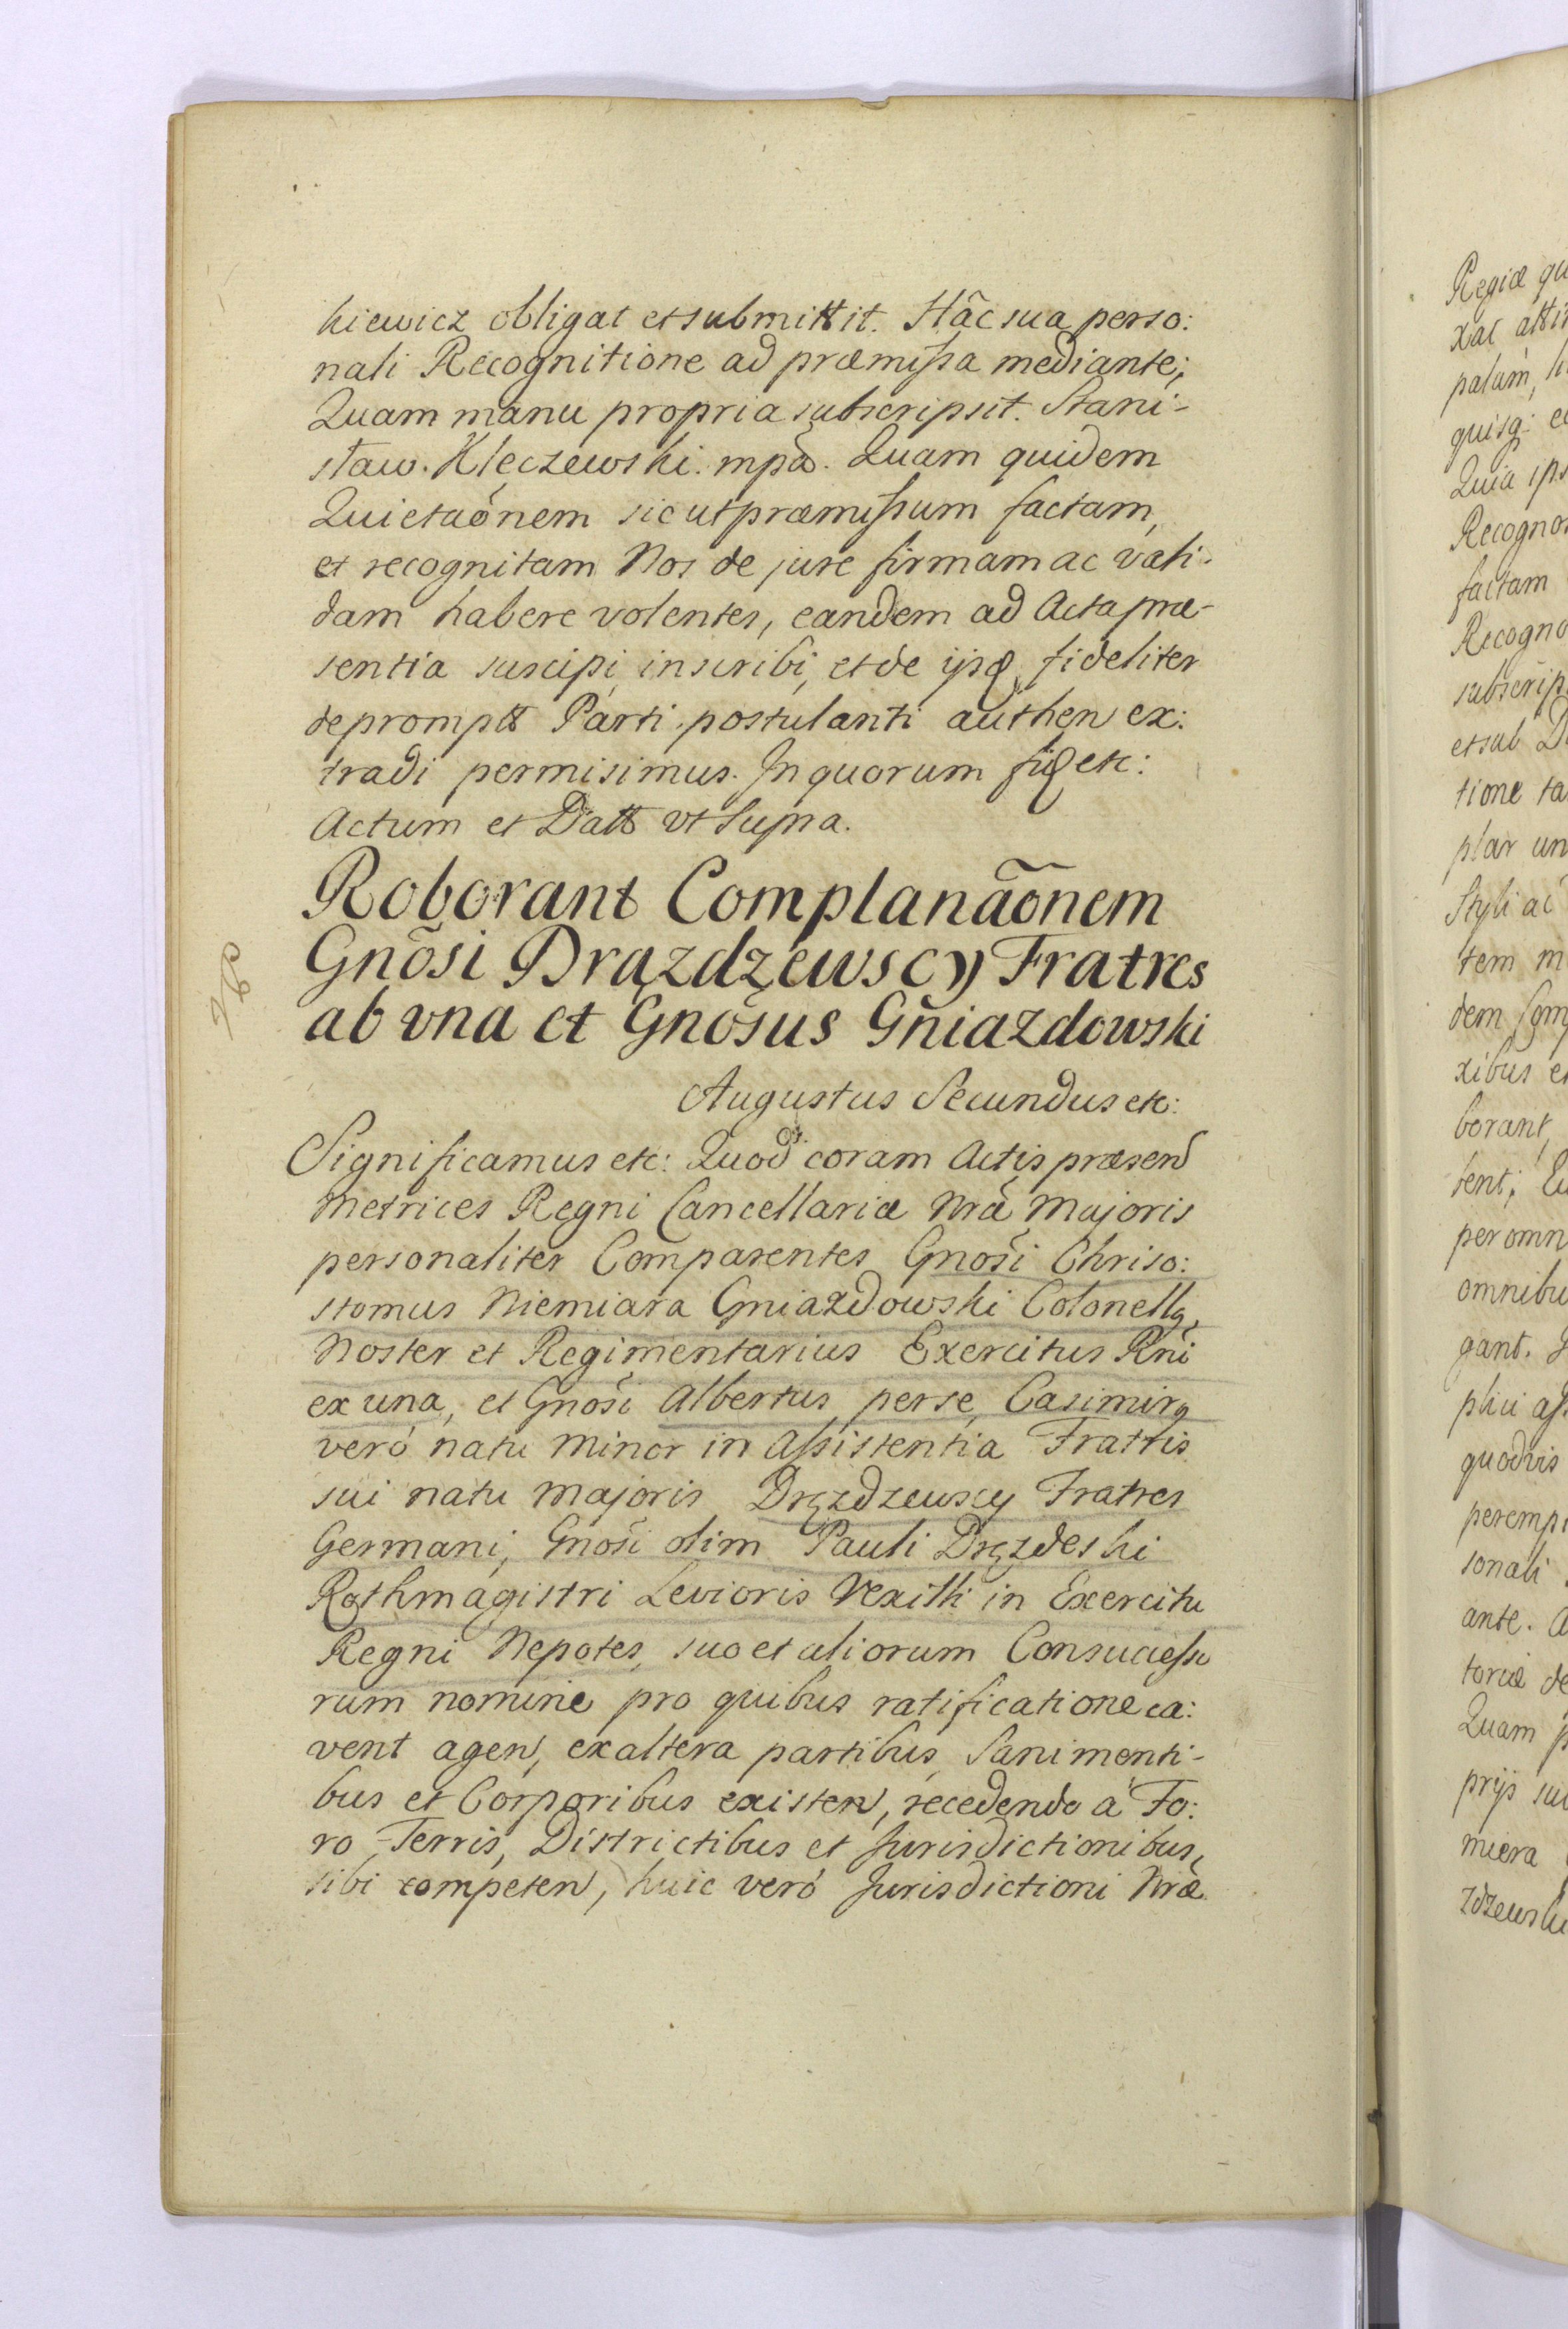 kiewicz obligat et submittit. Hâc sua perso:
nali Recognitione ad præmissa mediante;
Quam manu propria subscripsit. Stani-
sław. Kleczewski. mpã. Quam quidem
Quietaõnem sicut præmissum factam,
et recognitam Nos de jure firmam ac vali-
dam habere volentes, eandem ad Acta præ-
sentia suscipi, inscribi, et de ijsq, fideliter
depromptt Parti postulanti authen ex:
tradi permisimus. In quorum fid etc:
Actum et Datt vt supra.
Roborant Complanãonem
Gnõsi Drązdzewscy Fratres
ab vna et Gnõsus Gniazdowski
Augustus Secundus etc:
Significamus etc: Quod coram Actis præsen
Metrices Regni Cancellariæ Nrã Majoris
personaliter Comparentes Gnõsi Chriso:
stomus Niemiara Gniazdowski Colonellq,
Noster et Regimentarius Exercitus Rñi
ex una, et Gnõsi Albertus per se, Casimirq
veró natu minor in assistentia Fratris
sui natu Majoris Dręzdzewscy Fratres
Germani, Gnõsi olim Pauli Dręzdeski
Rothmagistri Levioris Vexilli in Exercitu
Regni Nepotes, suo et aliorum Consuccesso
rum nomine pro quibus ratificatione ca:
vent agen, ex altera partibus, Sani menti-
bus et Corporibus existen, recedendo à Fo:
ro Terris, Districtibus et Jurisdictionibus,
sibi competen, huic veró Jurisdictioni Nræ
Regiæ
palam,
Quia
factam
tione
dem
peromn
omnibu
gant.
quodvis
sonali
ante.
toriæ de
Quam
miera